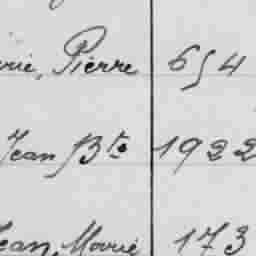 rie, Pierre 654
Jean Bte 1922
Jean, Marie 173